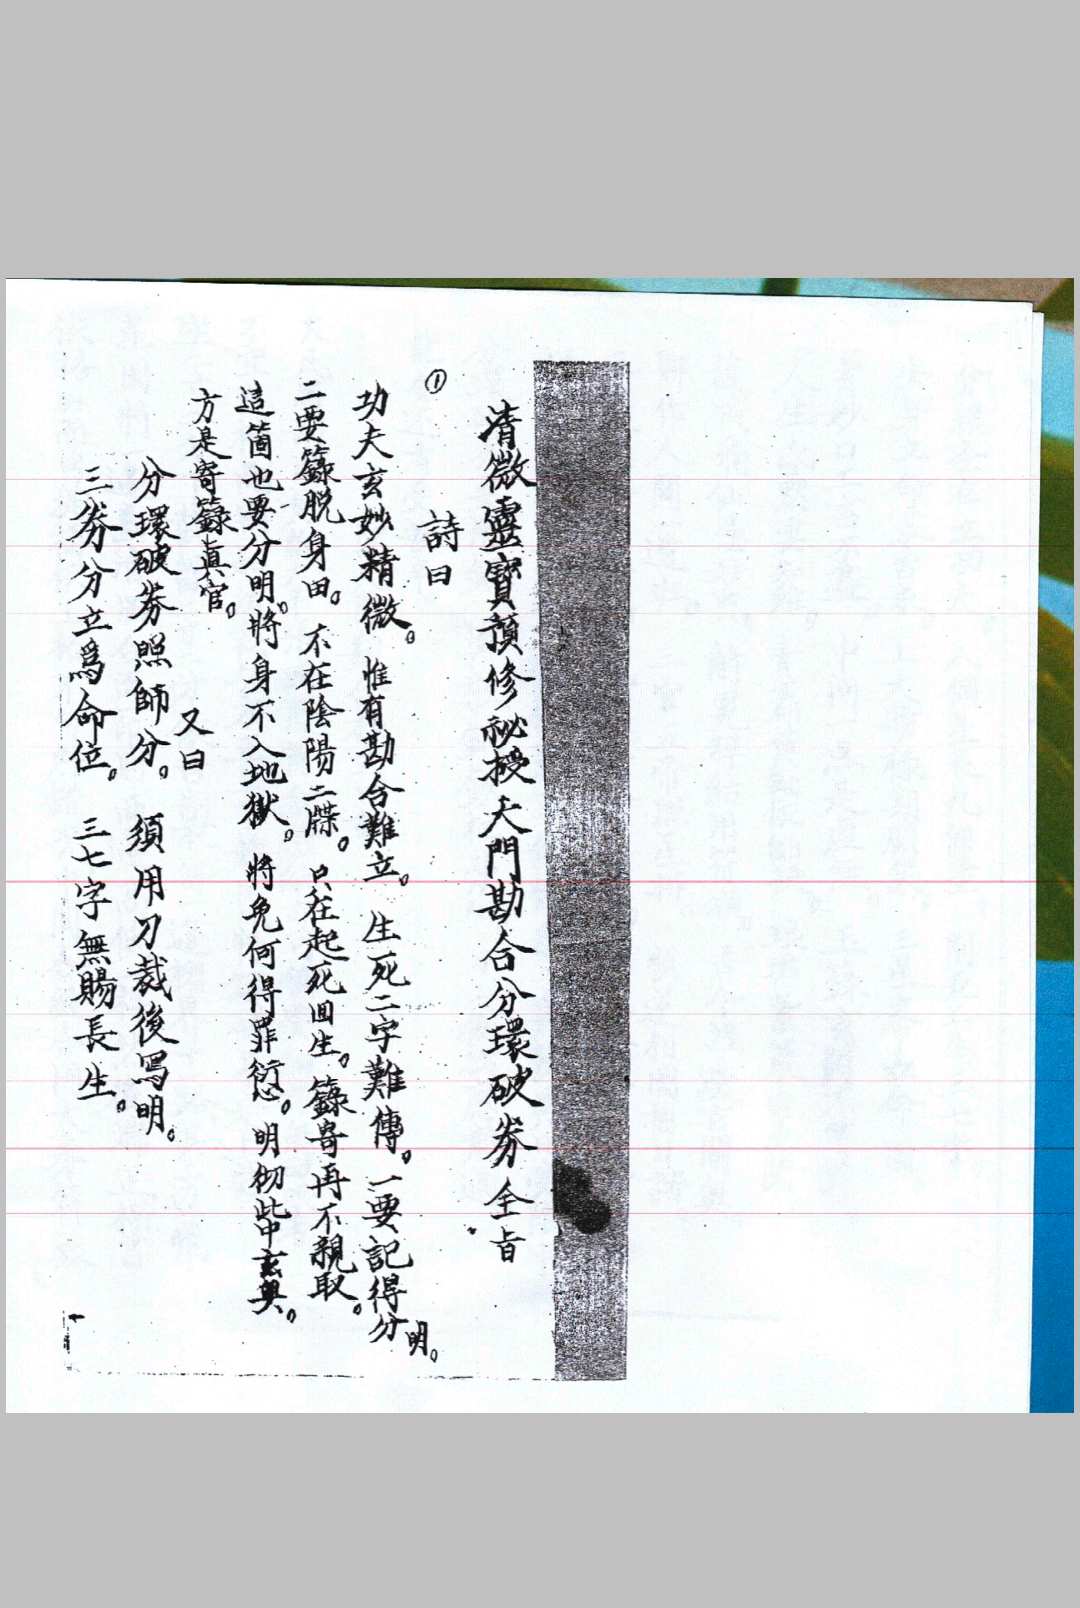 清微靈寶預修祕授大門勘合分環破券全旨
①
詩曰
功夫玄妙精微。惟有勘合難立。生死二字難傳。一要記得分明。
二要籙脫身田。不在陰陽二牒。只在起死回生。籙寄再不親取。
這箇也要分明。將身不入地獄。將免何得罪愆。明彻此中玄奥。
方是寄籙真官。
又曰
分環破券照師分。須用刀裁後寫明。
三券分立爲命位。三七字無賜長生。